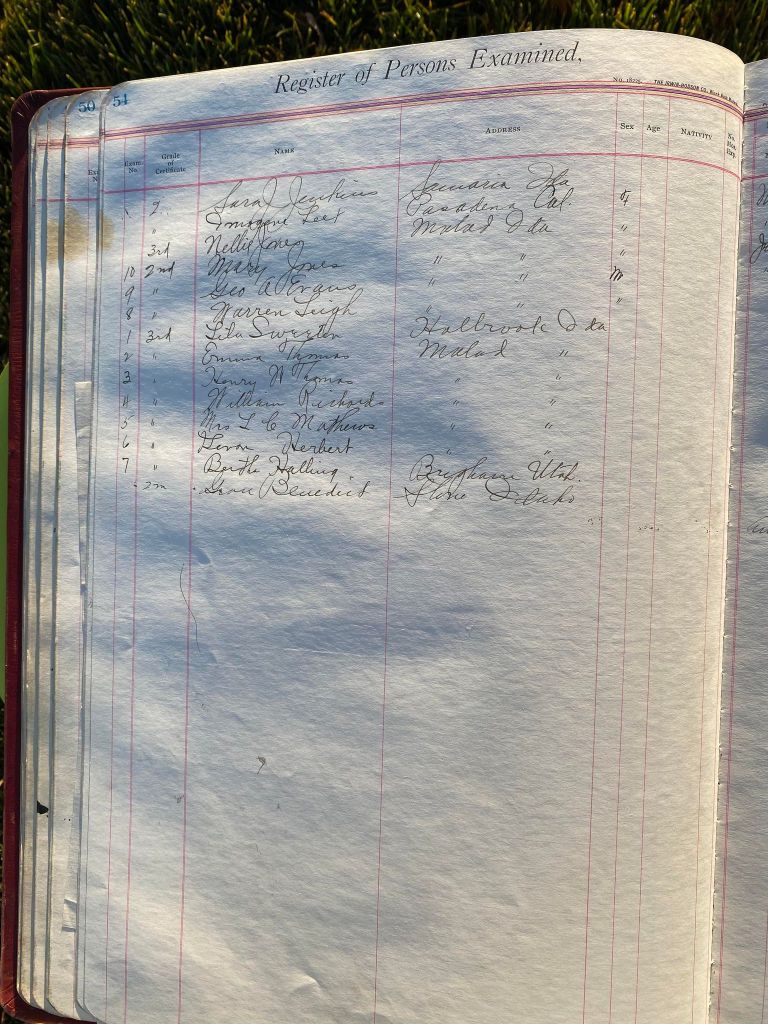 50 51
Register of Persons Examined,
No. 18275. THE IRWIN-HODSON CO.
Exam. No. Grade of Certificate NAME ADDRESS SEX AGE NATIVITY No. Mos. Exp.
2 Sara J Jenkins Samaria Ida
" Imogene Leet Pasadena Cal. f
3rd Nellie Jones Malad Ida "
10 2nd Mary Jones " " "
9 " Geo A Evans " " m
8 " Warren Leigh " " "
1 3rd Lila Sweeten Holbrook Ida
2 " Emma Thomas Malad "
3 " Henry W Thomas " "
4 " William Richards " "
5 " Mrs L C Mathews " "
6 " Herbert " "
7 " Bertha Halling Brigham Utah.
Benedict Stone Idaho